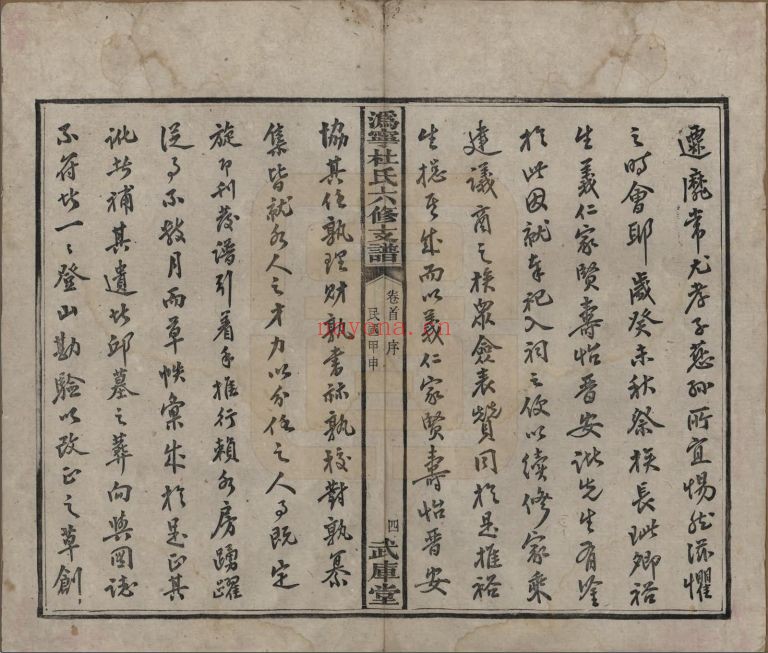 靡常尤孝子慈孫所宜惕然滋懼
之時會耶歲癸未秋祭族長珌卿裕
生義仁家賢壽怡晉安諸先生有鑒
於此因就奉祀入祠之便以續修家乘
建議商之族眾僉表贊同於是推裕
生總其成而以義仁家賢壽怡晉安
溈寧杜氏六修支譜
卷首 序
民國甲申
四
武庫堂
協其任孰理財孰書孰校對孰纂
集皆就各人之才力以分任之人事既定
旋即刊發譜引着手推行賴各房踴躍
從事不數月而草帙彙成於是正其
訛者補其遺者邱墓之葬向與圖誌
不符者一一登山勘驗以改正之草創
miyona.cn